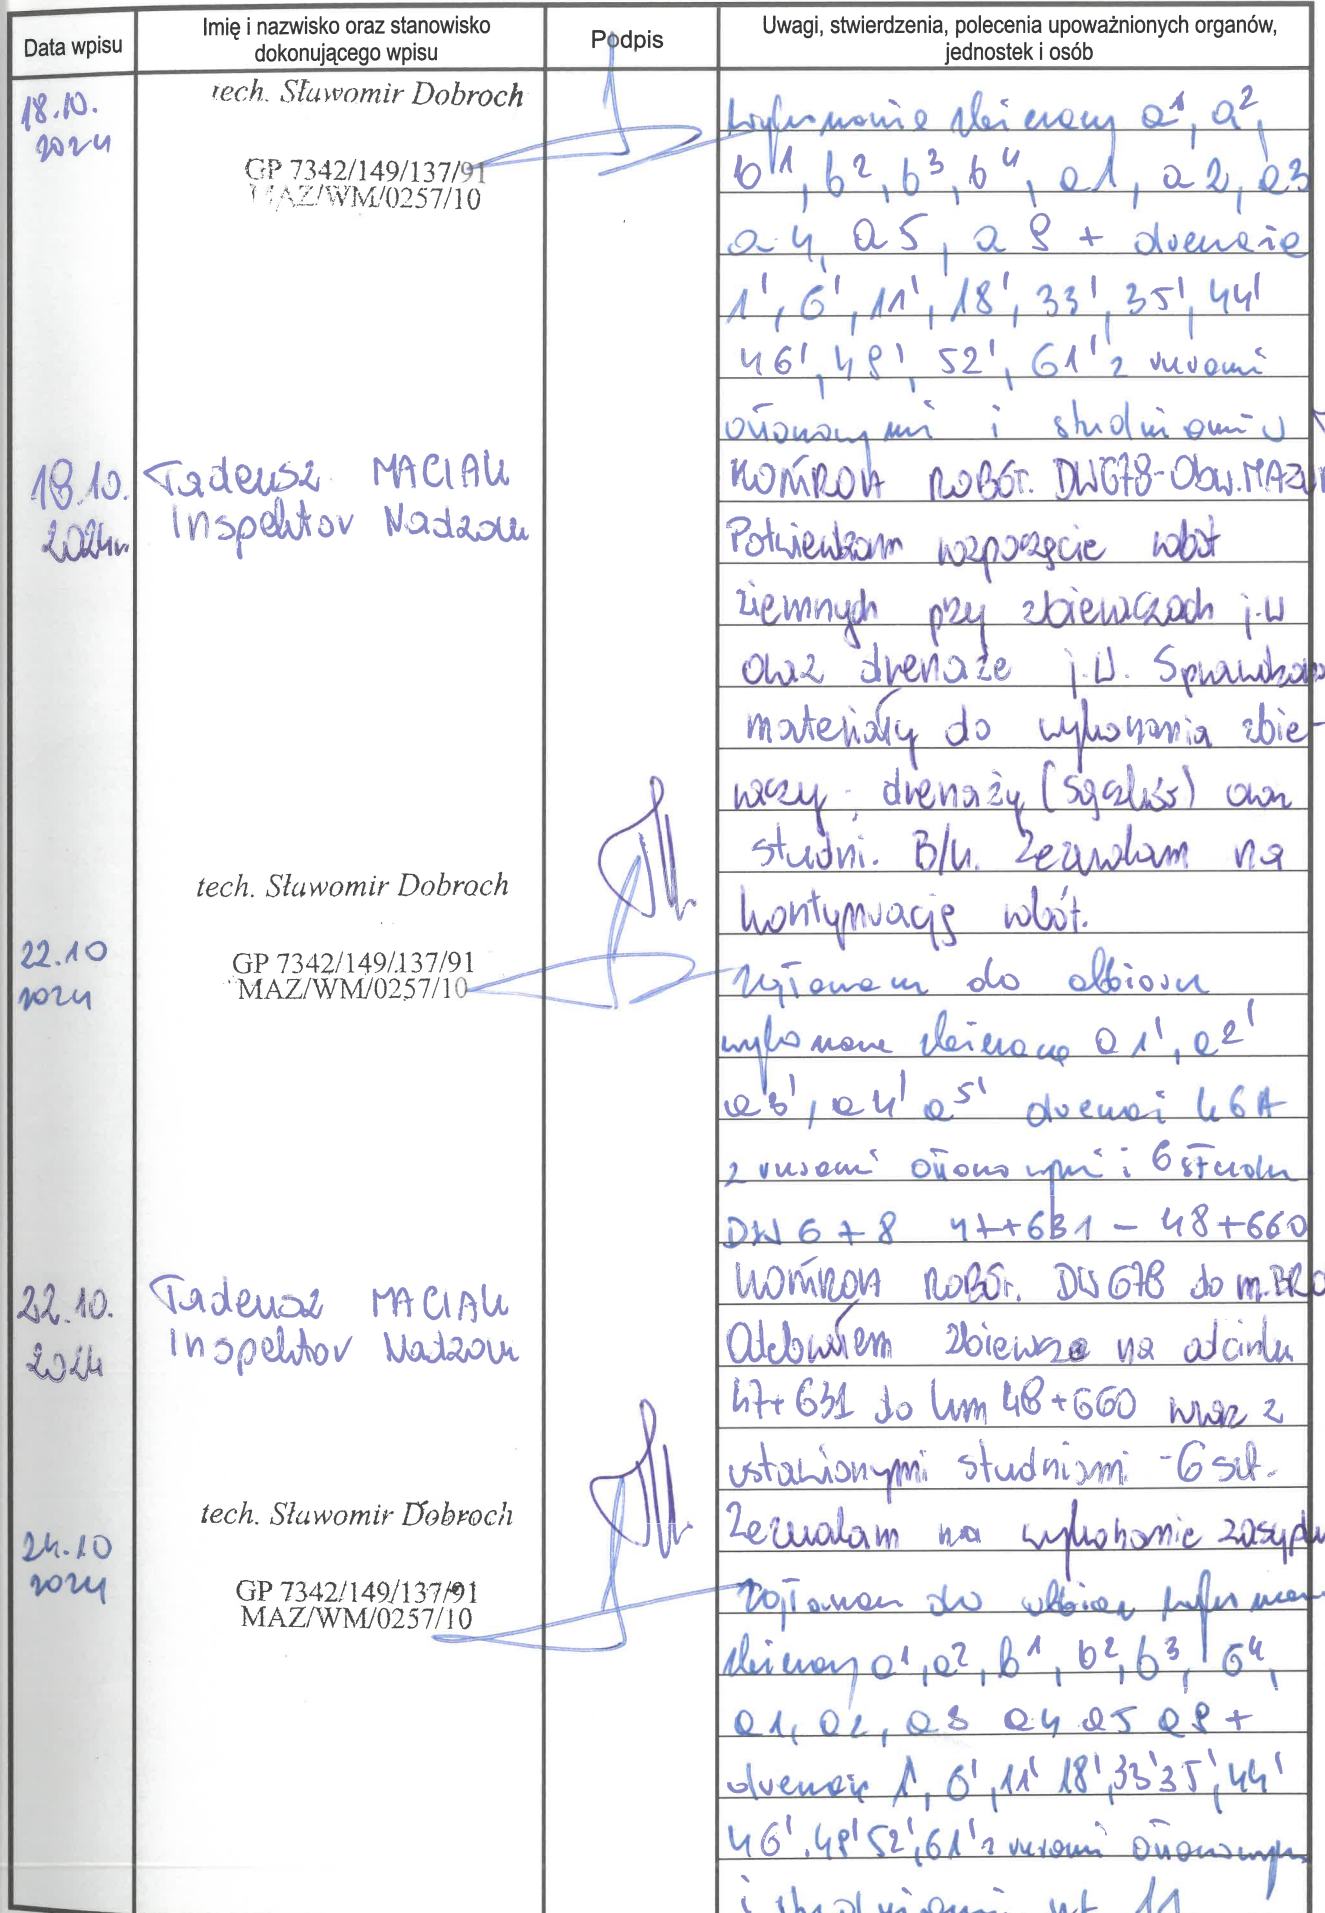 Data wpisu
Imię i nazwisko oraz stanowisko
dokonującego wpisu
Podpis
Uwagi, stwierdzenia, polecenia upoważnionych organów,
jednostek i osób
18.10.
2024
tech. Sławomir Dobroch
GP 7342/149/137/91
MAZ/WM/0257/10
wykonanie zbieraczy a¹, a²,
b¹, b², b³, b⁴, a1, a2, a3
a4, a5, a9 + drenaże
1', 6', 11', 18', 33', 35', 44'
46', 49', 52', 61' z rurami
osłonowymi i studniami
18.10.
2024r.
Tadeusz MACIAK
Inspektor Nadzoru
KONTROLA ROBÓT. DW678-Obw.MAZUR
Potwierdzam rozpoczęcie robót
ziemnych przy zbieraczach j.w
oraz drenaże j.w. Sprawdzono
materiały do wykonania zbie-
raczy, drenaży (sączków) oraz
studni. B/U. Zezwalam na
kontynuację robót.
22.10
2024
tech. Sławomir Dobroch
GP 7342/149/137/91
MAZ/WM/0257/10
Zgłaszam do odbioru
wykonane zbieracze a1', a2'
a3', a4' a5' drenaż 46A
z rurami osłonowymi i 6 studni
DW 678 47+631 - 48+660
22.10.
2024
Tadeusz MACIAK
Inspektor Nadzoru
KONTROLA ROBÓT. DW 678 do m.
Odebrałem zbieracze na odcinku
47+631 do km 48+660 wraz z
ustawionymi studniami - 6 szt.
Zezwalam na wykonanie zasypki
24.10
2024
tech. Sławomir Dobroch
GP 7342/149/137/91
MAZ/WM/0257/10
Zgłaszam do odbioru wykonane
zbieraczy a¹, a², b¹, b², b³, b⁴,
a1, a2, a3 a4 a5 a9 +
drenaże 1', 6', 11' 18', 33' 35', 44'
46', 49' 52', 61' z rurami osłonowymi
i studniami szt 11